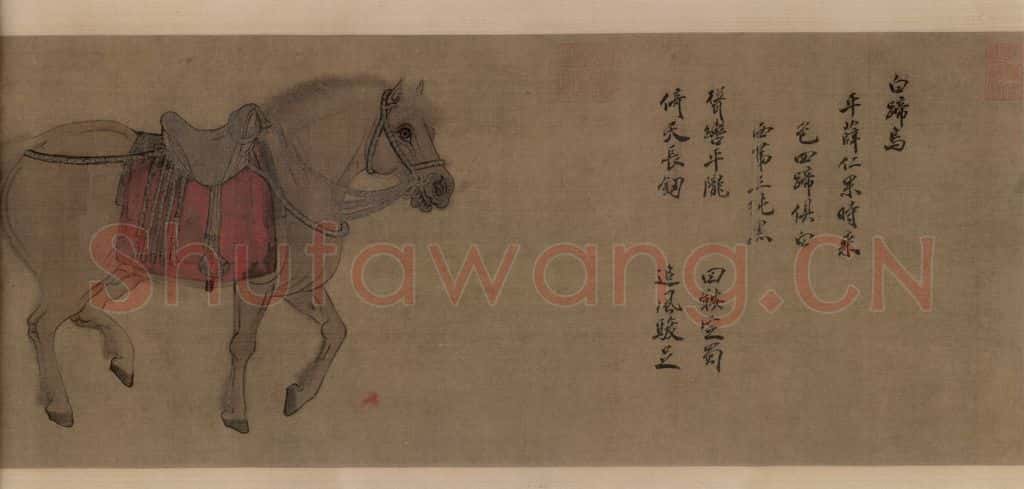 白蹄烏
西第二純黑
色四蹄俱白
平薛仁果時乘
倚天長劍 追風駿足
聳轡平隴 回鞍定蜀
Shufawang.CN